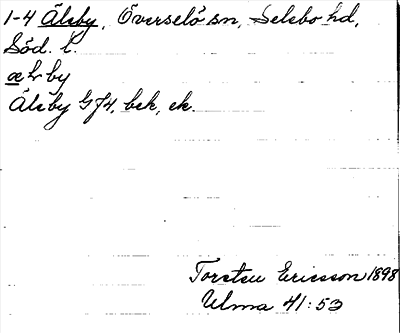 1-4 Älsby, Överselö sn, Selebo hd,
Söd. l.
Älsby G J4, bsk, ek.
Torsten Ericsson 1898
Ulma 41:53